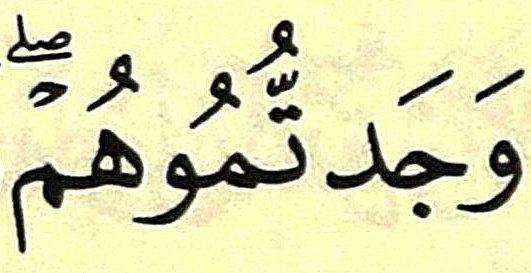 وَجَدتُّمُوهُمْ ۖ